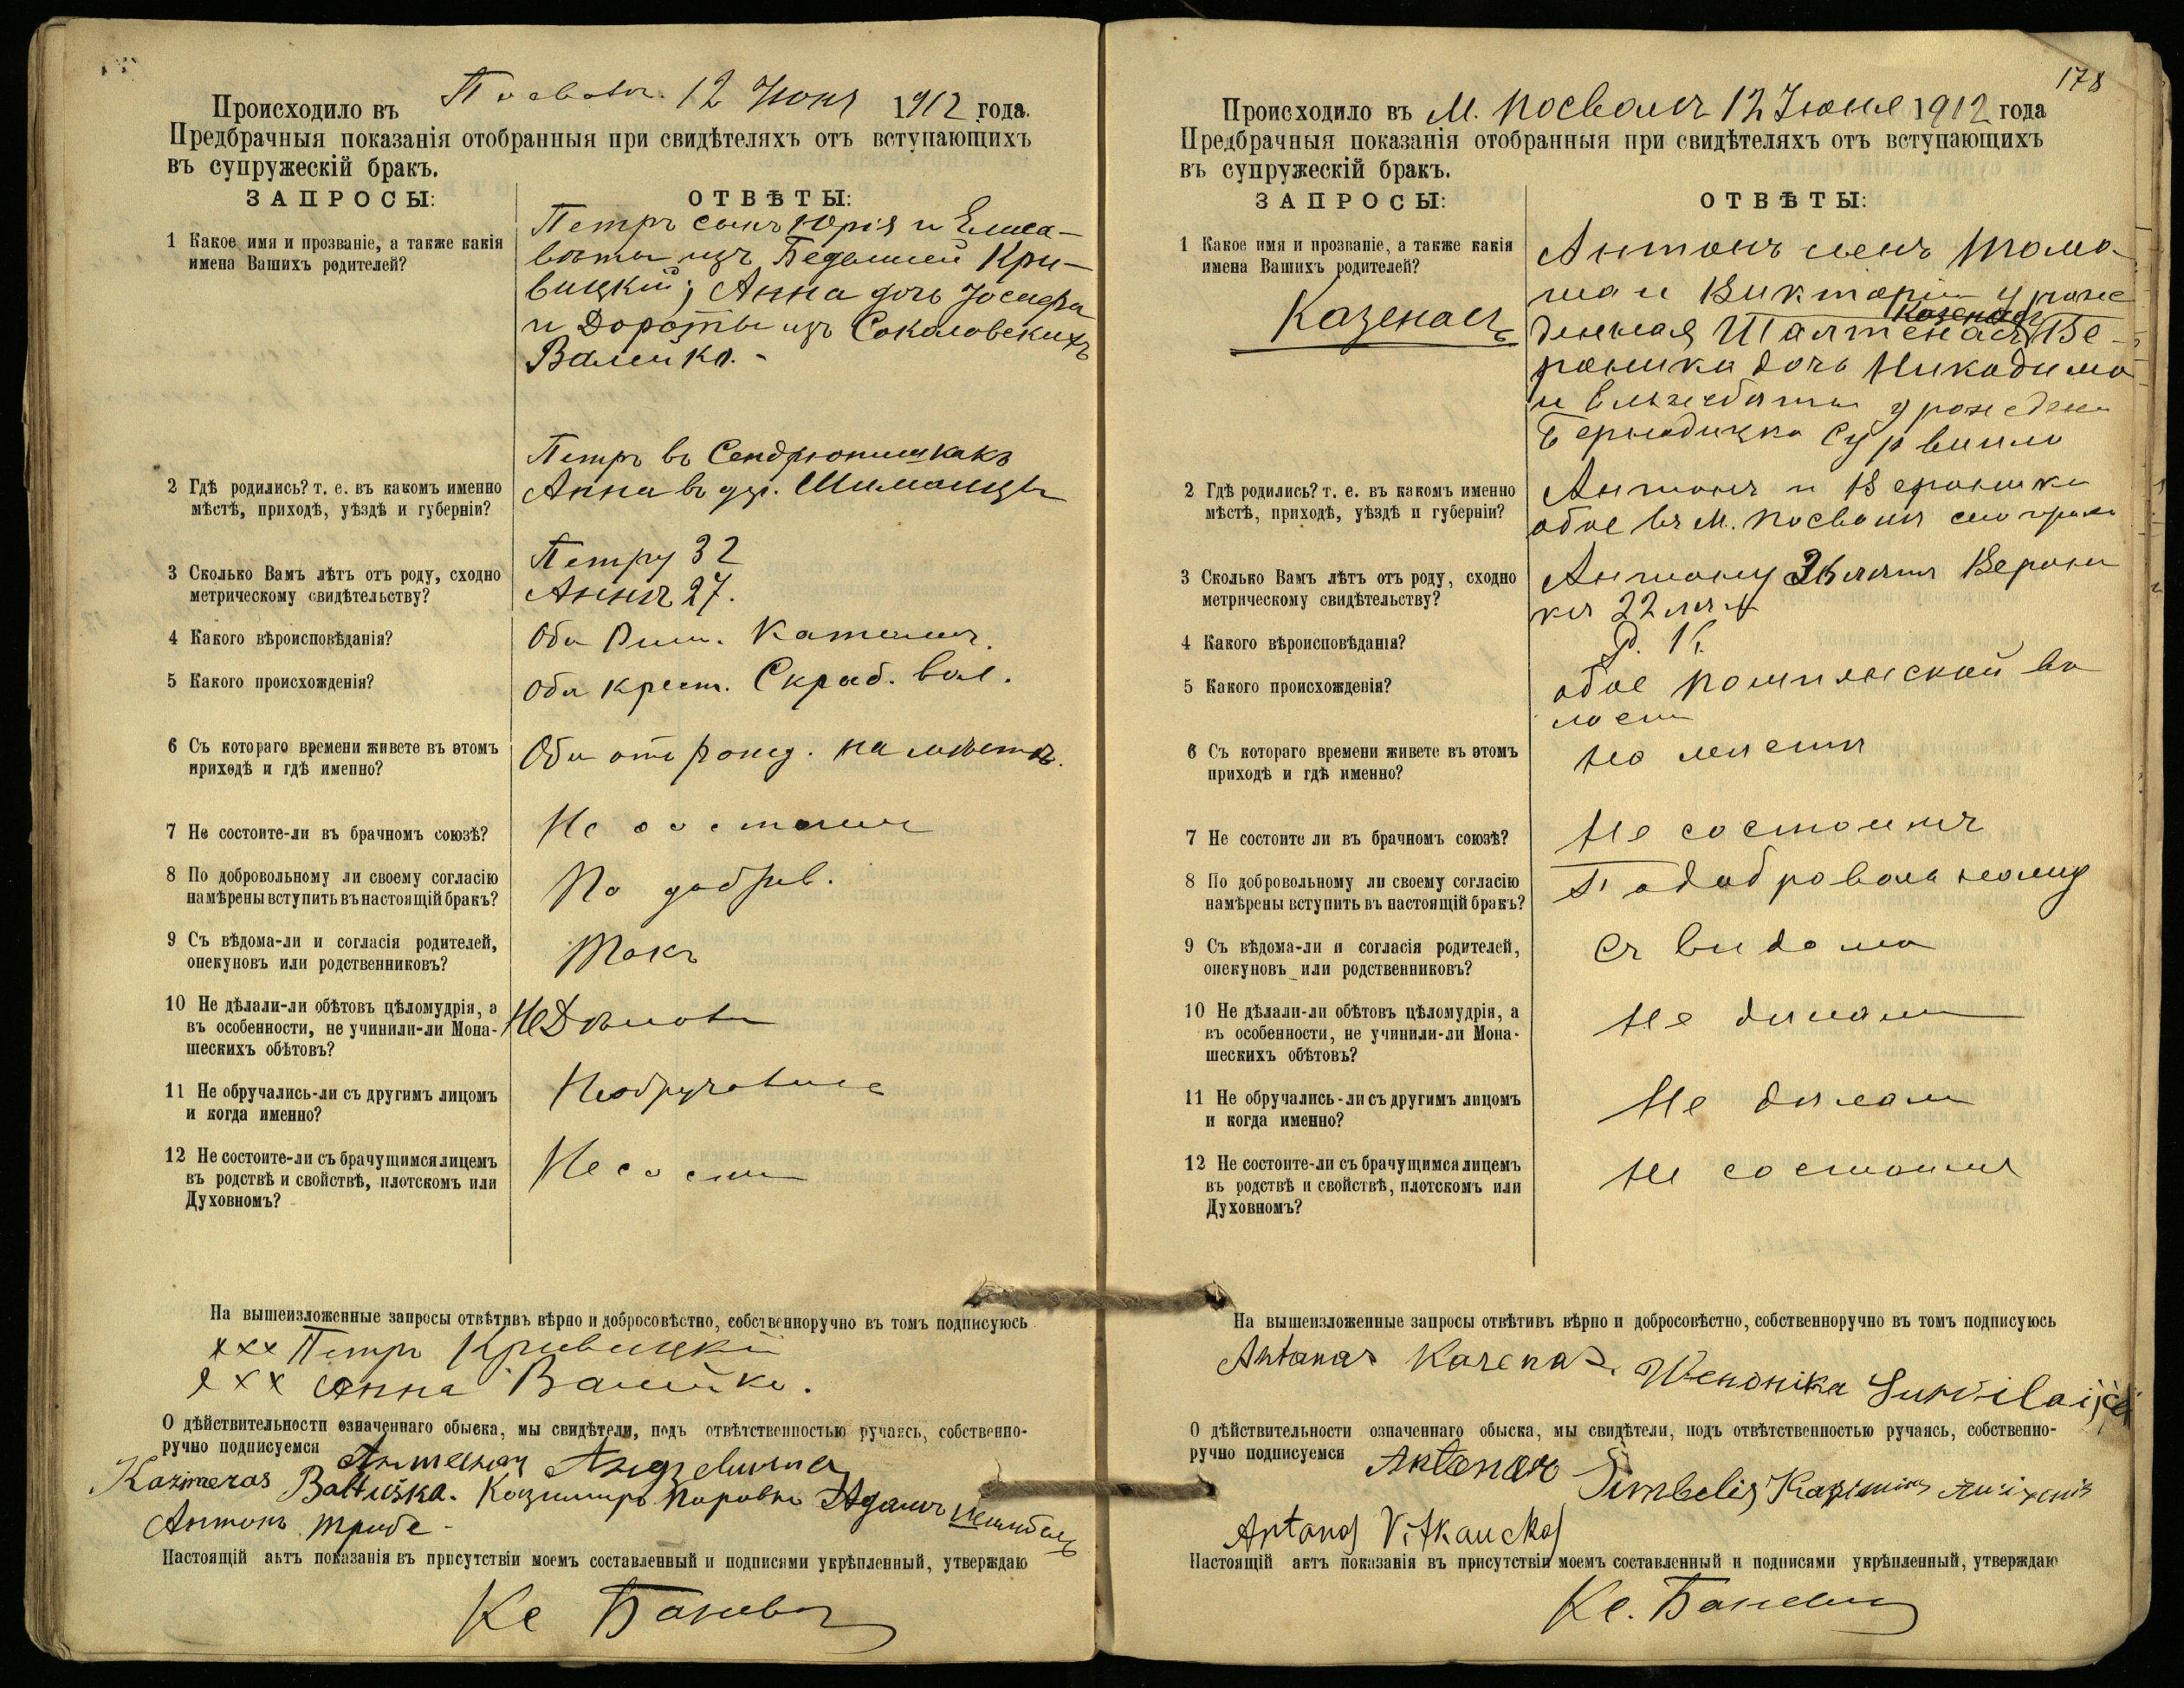 Происходило въ Посволь. 12 Іюня 1912 года.
Предбрачныя показанія отобранныя при свидѣтеляхъ отъ вступающихъ
въ супружескій бракъ.
ЗАПРОСЫ:
ОТВѢТЫ:
1 Какое имя и прозваніе, а также какія
имена Вашихъ родителей?
Петръ сынъ Юрія и Елиса-
веты изъ
Кри-
вицкій; Анна дочь Іосифа
и Дороты изъ Соколовскихъ
Валейко. -
2 Гдѣ родились? т. е. въ какомъ именно
мѣстѣ, приходѣ, уѣздѣ и губерніи?
Петръ въ
Анна въ дер. Шиманцы
3 Сколько Вамъ лѣтъ отъ роду, сходно
метрическому свидѣтельству?
Петру 32
Аннѣ 27.
4 Какого вѣроисповѣданія?
Оба Рим. Католич.
5 Какого происхожденія?
Оба крест. Скраб. вол.
6 Съ котораго времени живете въ этомъ
приходѣ и гдѣ именно?
Оба отъ рожд. на мѣстѣ.
7 Не состоите-ли въ брачномъ союзѣ?
Не состоимъ
8 По добровольному ли своему согласію
намѣрены вступить въ настоящій бракъ?
По добров.
9 Съ вѣдома-ли и согласія родителей,
опекуновъ или родственниковъ?
Такъ
10 Не дѣлали-ли обѣтовъ цѣломудрія, а
въ особенности, не учинили-ли Мона-
шескихъ обѣтовъ?
Не Дѣлали
11 Не обручались-ли съ другимъ лицомъ
и когда именно?
Необручались
12 Не состоите-ли съ брачущимся лицемъ
въ родствѣ и свойствѣ, плотскомъ или
Духовномъ?
Не сост
На вышеизложенные запросы отвѣтивъ вѣрно и добросовѣстно, собственноручно въ томъ подписуюсь
xxx Петръ Кривицкій
xxx Анна Валейко.
О дѣйствительности означеннаго обыска, мы свидѣтели, подъ отвѣтственностью ручаясь, собственно-
ручно подписуемся
Kazimeras Baltuška. Казимиръ Адамъ
Антонъ
Настоящій актъ показанія въ присутствіи моемъ составленный и подписями укрѣпленный, утверждаю
Кс Баневич
178
Происходило въ м. Посволь 12 Іюня 1912 года
Предбрачныя показанія отобранныя при свидѣтеляхъ отъ вступающихъ
въ супружескій бракъ.
ЗАПРОСЫ:
ОТВѢТЫ:
1 Какое имя и прозваніе, а также какія
имена Вашихъ родителей?
Казенасъ
Антонъ сынъ Тома-
ша и Викторіи урож
Казенасъ
денная Шалтенасъ Ве-
роника дочь Никодима
и Ельжебѣты урожден
Сурвилло
2 Гдѣ родились? т. е. въ какомъ именно
мѣстѣ, приходѣ, уѣздѣ и губерніи?
Антонъ и Вероника
обое въ м. Посволь
3 Сколько Вамъ лѣтъ отъ роду, сходно
метрическому свидѣтельству?
Антону 36 лѣтъ Верони
кѣ 22 лѣт
4 Какого вѣроисповѣданія?
Р. К.
5 Какого происхожденія?
обое во
лости
6 Съ котораго времени живете въ этомъ
приходѣ и гдѣ именно?
на мѣстѣ
7 Не состоите ли въ брачномъ союзѣ?
Не состоимъ
8 По добровольному ли своему согласію
намѣрены вступить въ настоящій бракъ?
По добровольному
9 Съ вѣдома-ли и согласія родителей,
опекуновъ или родственниковъ?
Съ видома
10 Не дѣлали-ли обѣтовъ цѣломудрія, а
въ особенности, не учинили-ли Мона-
шескихъ обѣтовъ?
Не дѣлали
11 Не обручались-ли съ другимъ лицомъ
и когда именно?
Не дѣлали
12 Не состоите-ли съ брачущимся лицемъ
въ родствѣ и свойствѣ, плотскомъ или
Духовномъ?
Не состоимъ
На вышеизложенные запросы отвѣтивъ вѣрно и добросовѣстно, собственноручно въ томъ подписуюсь
Antanas Kazenas. Weronika Survilaijčė
О дѣйствительности означеннаго обыска, мы свидѣтели, подъ отвѣтственностью ручаясь, собственно-
ручно подписуемся Antanas Šimbelis
Antanas Vitkauckas
Настоящій актъ показанія въ присутствіи моемъ составленный и подписями укрѣпленный, утверждаю
Кс. Баневич